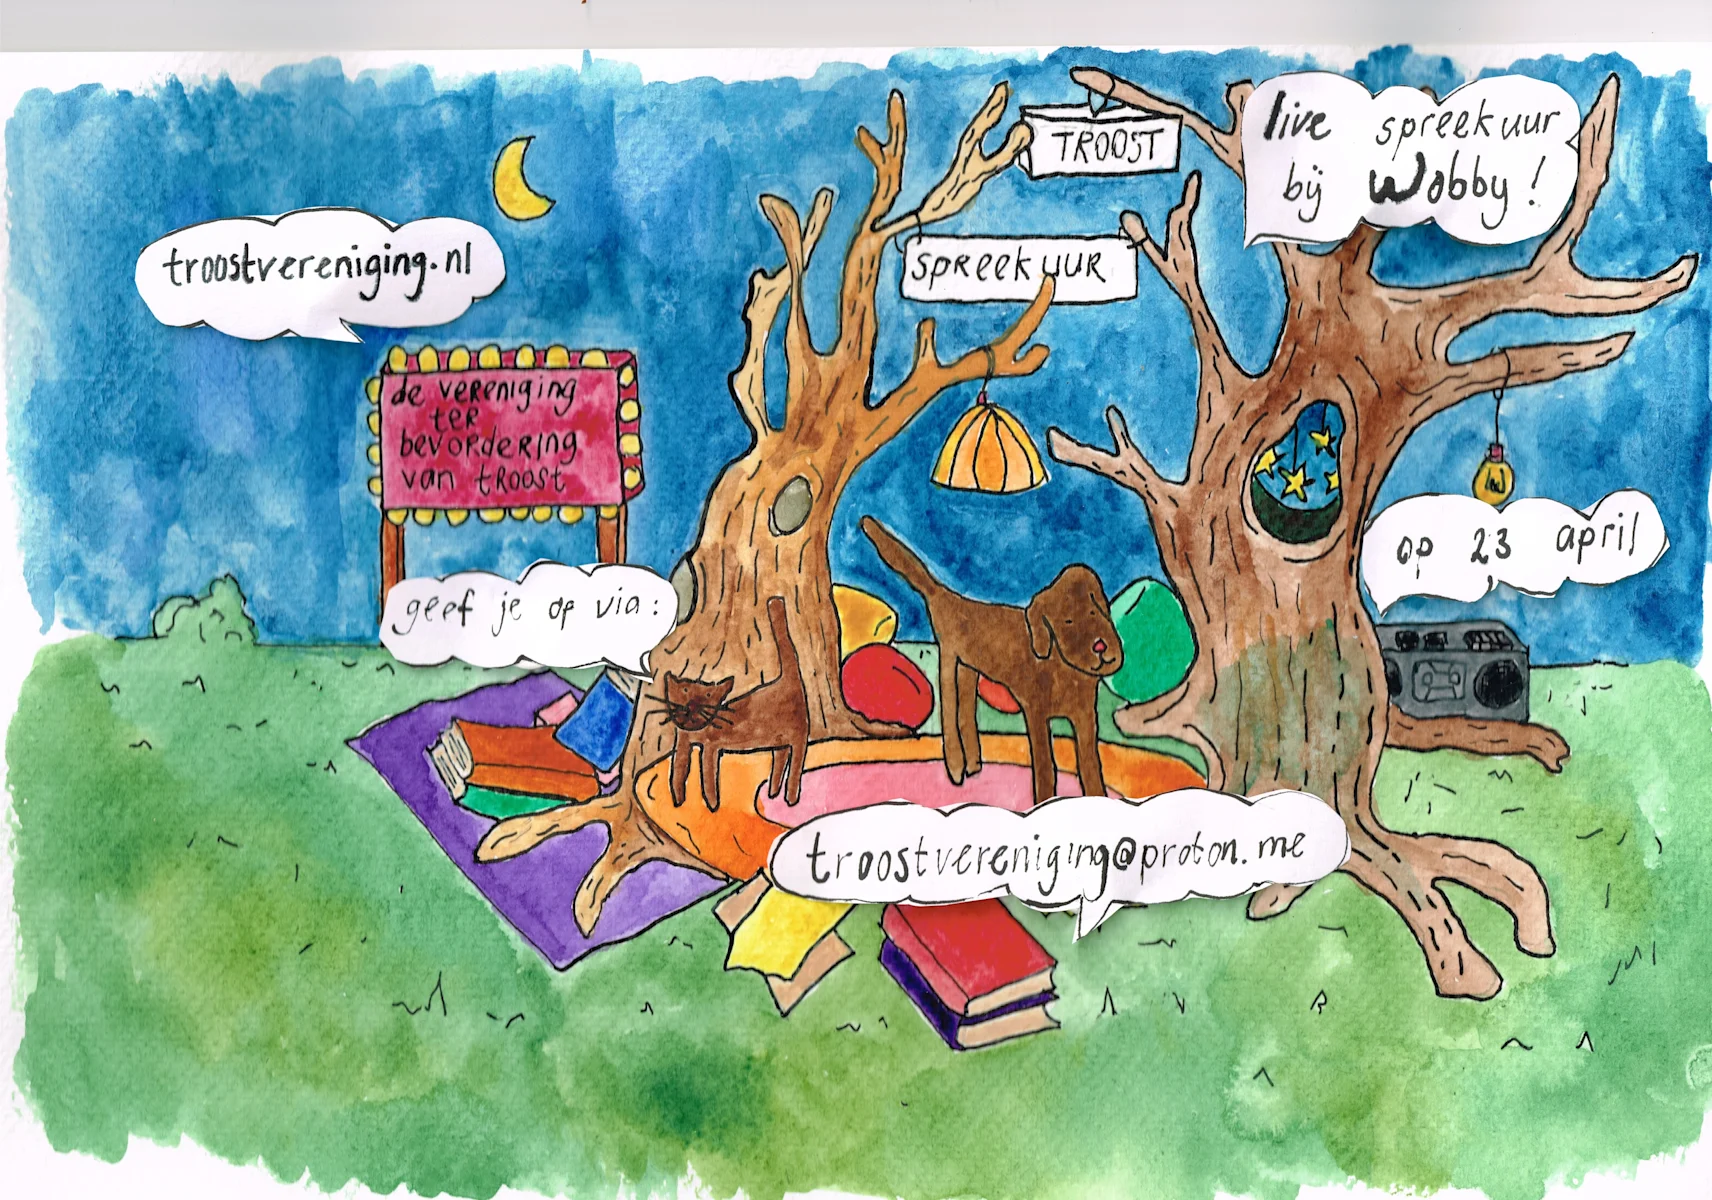 TROOST
live spreekuur
bij Wobby!
troostvereniging.nl
spreekuur
de vereniging
ter
bevordering
van troost
op 23 april
geef je op via:
troostvereniging@proton.me